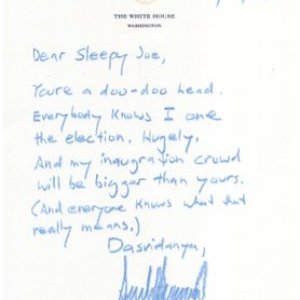 THE WHITE HOUSE
WASHINGTON
Dear Sleepy Joe,
Youre a doo-doo head.
Everybody knows I one
the election. Hugely.
And my inaugration crowd
will be bigger than yours.
(And everyone knows what that
really means.)
Dasvidanya,